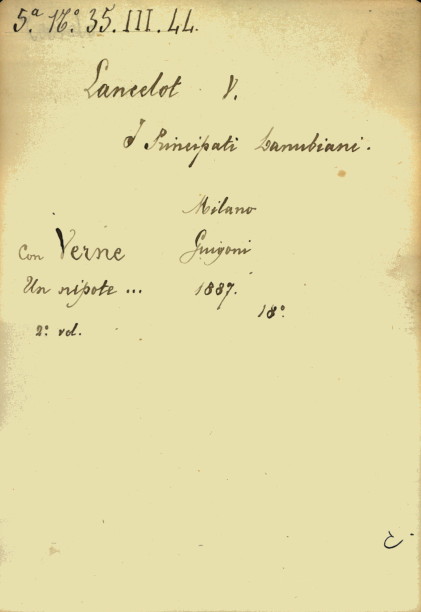 5.ª N.º 35. III. 44.
Lancelot V.
I Principati Danubiani.
Milano
Con Verne Guigoni
Un nipote ... 1887.
18º
2º vol.